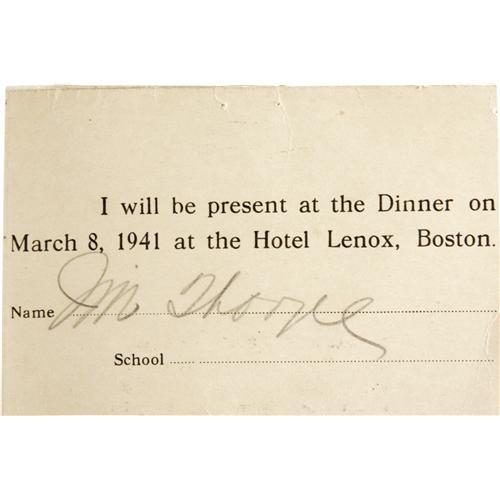 I will be present at the Dinner on
March 8, 1941 at the Hotel Lenox, Boston.
Name Jim Thorpe
School